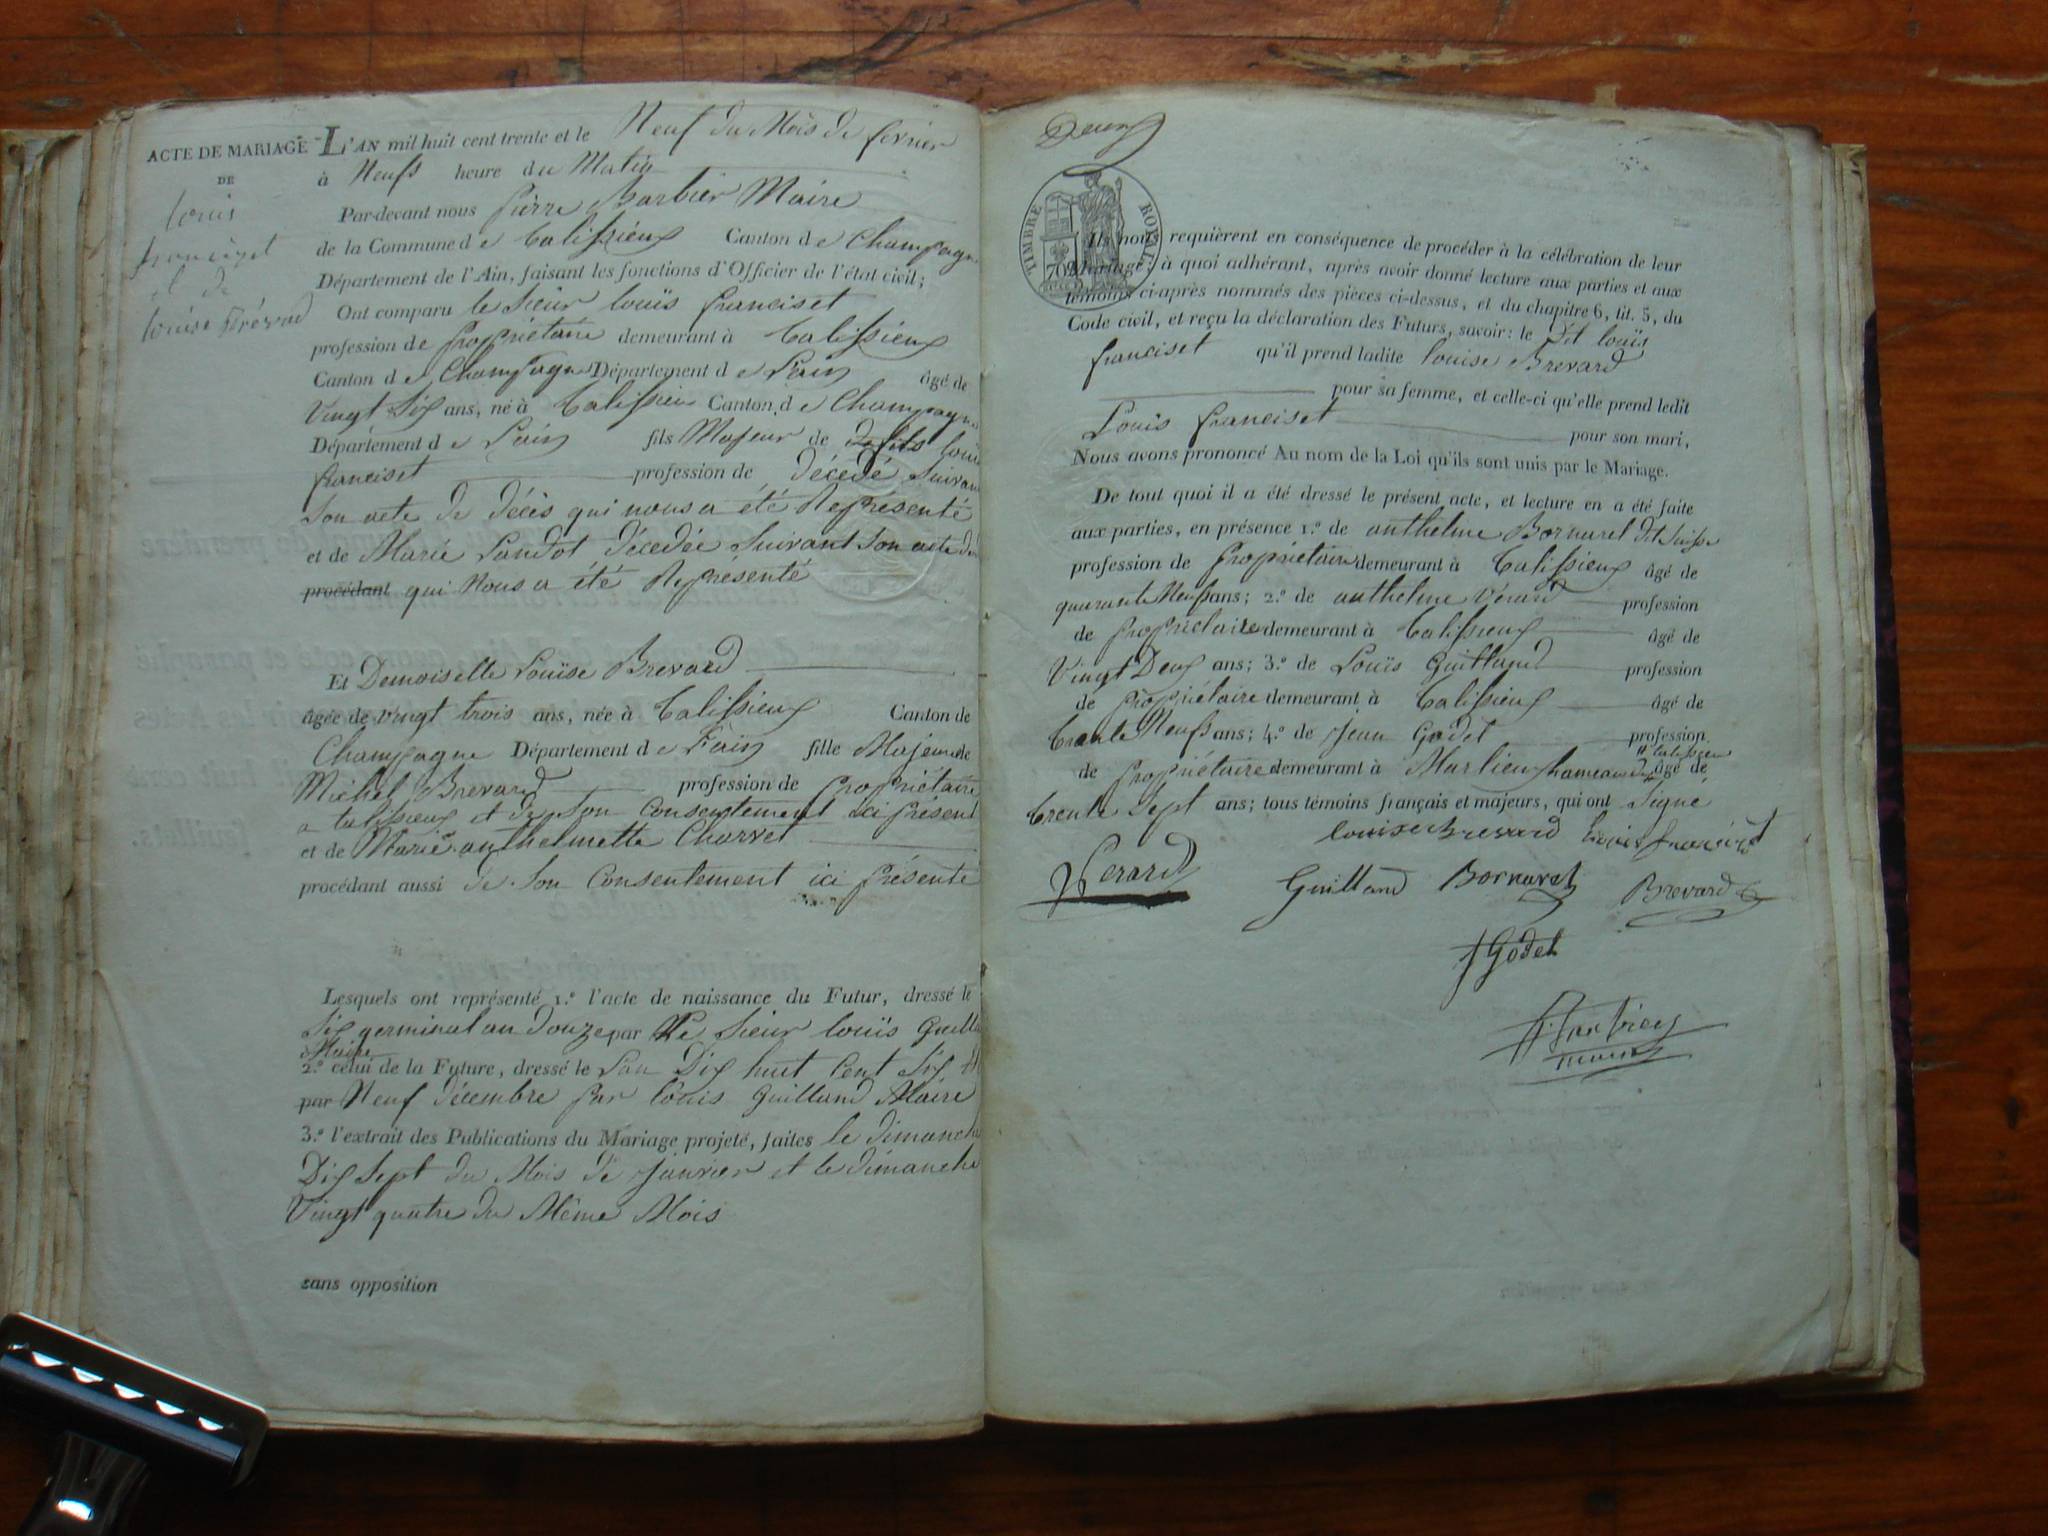 ACTE DE MARIAGE
DE
Louis
franciset
et de
Louise Brévard
L'AN mil huit cent trente et le Neuf du Mois de fevrier
à Neufs heure du Matin
Par-devant nous Pierre Barbier Maire
de la Commune de Talissieux Canton de Champagne
Département de l'Ain, faisant les fonctions d'Officier de l'état civil;
Ont comparu le Sieur louïs franciset
profession de propriétaire demeurant à Talissieux
Canton de Champagne Département de L'ain âgé de
Vingt Six ans, né à Talissieu Canton de Champagne
Département de L'ain fils Majeur de louis
franciset profession de décédé Suivant
Son acte de décès qui nous a été Représenté
et de Marie Landot décedée Suivant Son acte de
procédant qui Nous a été Représenté
Et Demoiselle Louise Brevard
âgée de vingt trois ans, née à Talissieux Canton de
Champagne Département de L'ain fille Majeure de
Michel Brevard profession de propriétaire
a talissieux et de Son Consentement ici présent
et de Marie anthelmette Charvet
procédant aussi de Son Consentement ici présente
Lesquels ont représenté 1.º l'acte de naissance du Futur, dressé le
Six germinal an douze par Le Sieur louïs Guilland
Maire
2.º celui de la Future, dressé le L'an Dix huit Cent Six le
par Neuf décembre par louis Guilland Maire
3.º l'extrait des Publications du Mariage projeté, faites le dimanche
Dix Sept du Mois de janvier et le dimanche
Vingt quatre du Même Mois
sans opposition
Deux
TIMBRE ROYAL
70
Ils nous requièrent en conséquence de procéder à la célébration de leur
Mariage; à quoi adhérant, après avoir donné lecture aux parties et aux
témoins ci-après nommés des pièces ci-dessus, et du chapitre 6, tit. 5, du
Code civil, et reçu la déclaration des Futurs, savoir: le Dit louïs
franciset qu'il prend ladite louise Brevard
pour sa femme, et celle-ci qu'elle prend ledit
Louis franciset pour son mari,
Nous avons prononcé Au nom de la Loi qu'ils sont unis par le Mariage.
De tout quoi il a été dressé le présent acte, et lecture en a été faite
aux parties, en présence 1.º de anthelme Bornarel dit Suisse
profession de propriétaire demeurant à Talissieux âgé de
quarante Neufs ans; 2.º de anthelme Vérard profession
de propriétaire demeurant à Talissieux âgé de
Vingt Deux ans; 3.º de Louïs Guilland profession
de propriétaire demeurant à Talissieux âgé de
Trente Neufs ans; 4.º de Jean Godet profession
de propriétaire demeurant à Marlieux hameau de Talissieu âgé de
trente Sept ans; tous témoins français et majeurs, qui ont Signé
louise Brevard Louis franciset
Verard Guilland Bornarel Brevard
J Godet
P. Barbier
maire